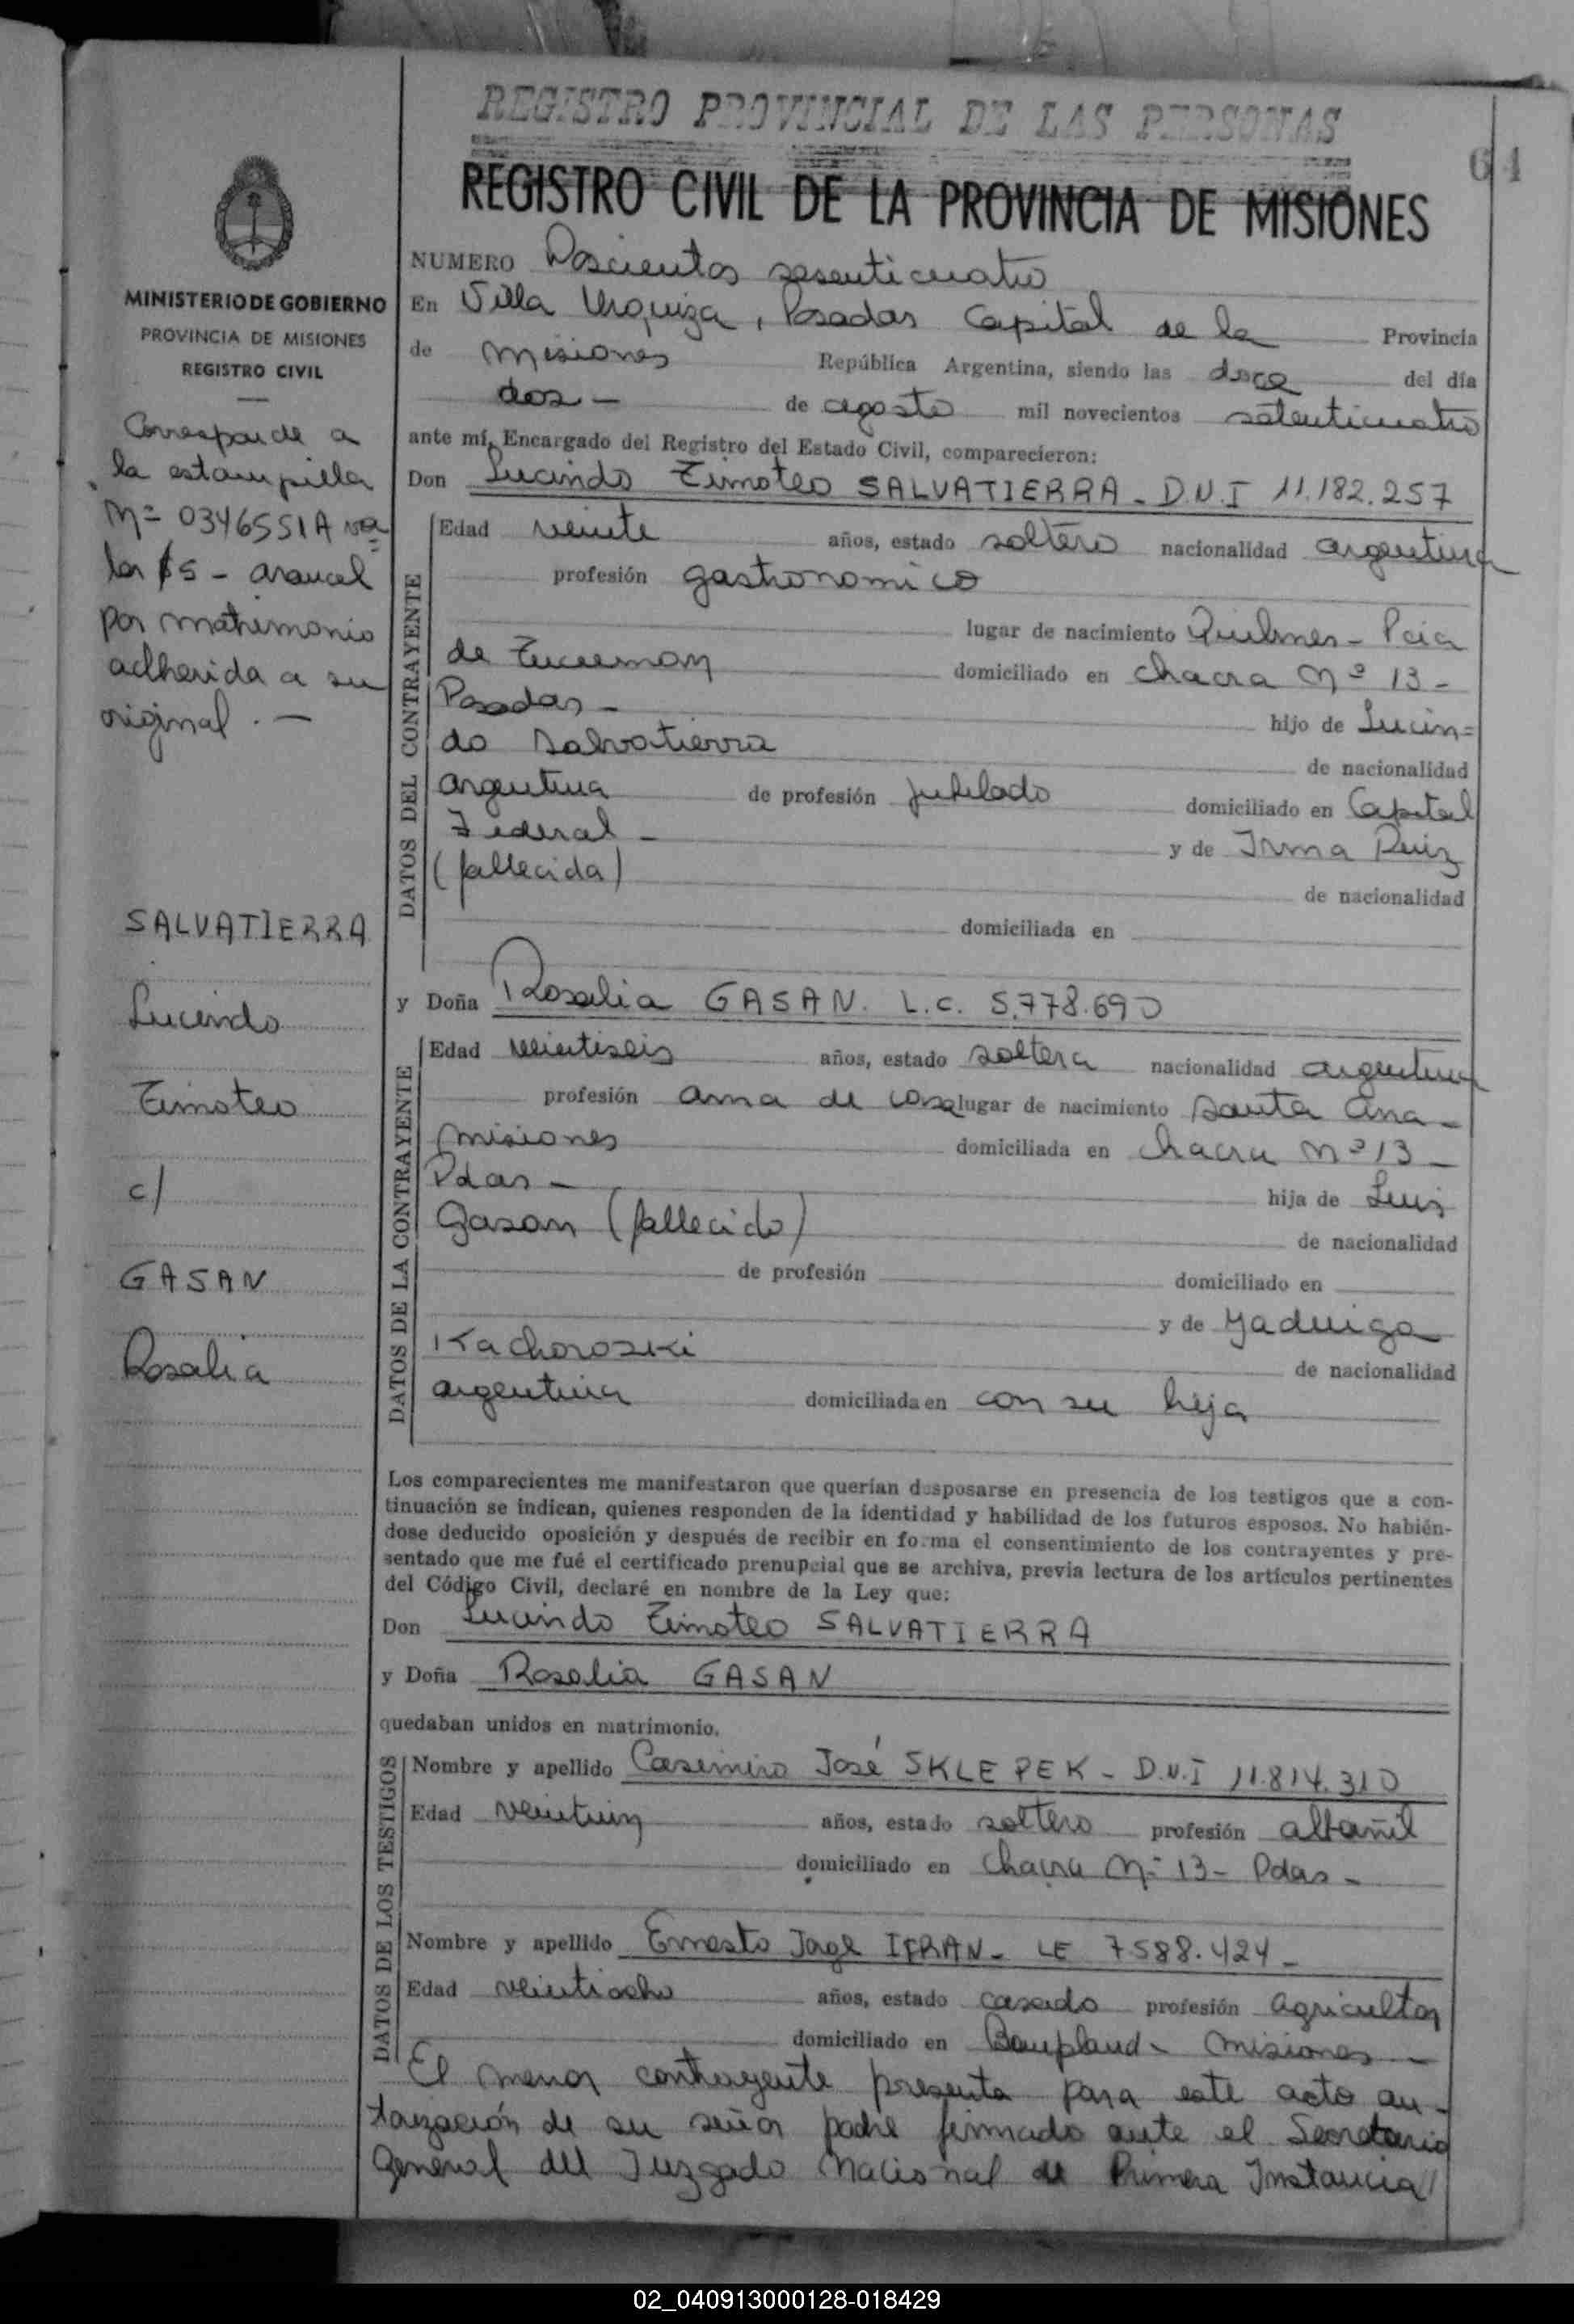 REGISTRO PROVINCIAL DE LAS PERSONAS
64
REGISTRO CIVIL DE LA PROVINCIA DE MISIONES
MINISTERIO DE GOBIERNO
PROVINCIA DE MISIONES
REGISTRO CIVIL
Corresponde a
la estampilla
Nº 0346551A va
lor $5 - arancel
por matrimonio
adherida a su
original . —
SALVATIERRA
Lucindo
Timoteo
c/
GASAN
Rosalia
NUMERO Doscientos sesenticuatro
En Villa Urquiza, Posadas Capital de la Provincia
de Misiones República Argentina, siendo las doce del día
dos - de agosto mil novecientos setenticuatro
ante mí, Encargado del Registro del Estado Civil, comparecieron:
Don Lucindo Timoteo SALVATIERRA - D.N.I 11.182.257
DATOS DEL CONTRAYENTE
Edad veinte años, estado soltero nacionalidad argentina
profesión gastronomico
lugar de nacimiento Quilmes - Pcia
de Tucuman domiciliado en chacra Nº 13 -
Posadas - hijo de Lucin=
do Salvatierra de nacionalidad
argentina de profesión jubilado domiciliado en Capital
Federal - y de Irma Ruiz
(fallecida) de nacionalidad
domiciliada en
y Doña Rosalia GASAN. L.C. 5.778.690
DATOS DE LA CONTRAYENTE
Edad veintiseis años, estado soltera nacionalidad argentina
profesión ama de casa lugar de nacimiento Santa Ana -
Misiones domiciliada en chacra Nº 13 -
Pdas - hija de Luis
Gasan (fallecido) de nacionalidad
de profesión domiciliado en
y de Yaduiga
Kachoroski de nacionalidad
argentina domiciliada en con su hija
Los comparecientes me manifestaron que querían desposarse en presencia de los testigos que a con-
tinuación se indican, quienes responden de la identidad y habilidad de los futuros esposos. No habién-
dose deducido oposición y después de recibir en forma el consentimiento de los contrayentes y pre-
sentado que me fué el certificado prenupcial que se archiva, previa lectura de los artículos pertinentes
del Código Civil, declaré en nombre de la Ley que:
Don Lucindo Timoteo SALVATIERRA
y Doña Rosalia GASAN
quedaban unidos en matrimonio.
DATOS DE LOS TESTIGOS
Nombre y apellido Casimiro José SKLEPEK - D.N.I 11.814.310
Edad veintiun años, estado soltero profesión albañil
domiciliado en chacra Nº 13 - Pdas -
Nombre y apellido Ernesto Jorge IFRAN - LE 7588.424 -
Edad veintiocho años, estado casado profesión agricultor
domiciliado en Bonpland - Misiones -
El menor contrayente presenta para este acto au-
torización de su señor padre firmado ante el Secretario
General del Juzgado Nacional de Primera Instancia//
02_040913000128-018429